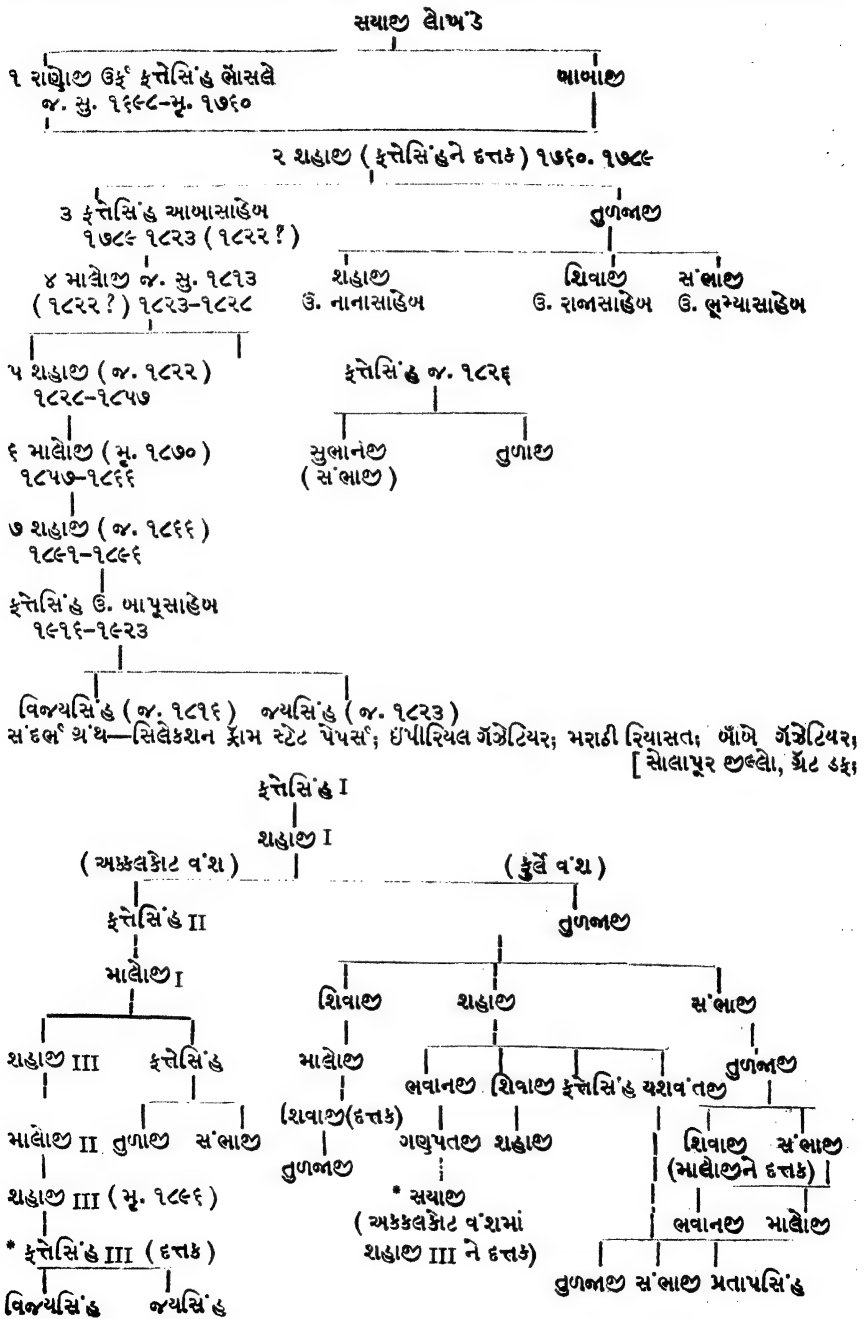 સયાજી લોખંડે
૧ રાણોજી ઉર્ફ ફત્તેસિંહ ભોંસલે બાબાજી
જ. સુ. ૧૬૯૮–મૃ. ૧૭૬૦
૨ શહાજી (ફત્તેસિંહને દત્તક) ૧૭૬૦. ૧૭૮૯
૩ ફત્તેસિંહ આબાસાહેબ તુળજાજી
૧૭૮૯ ૧૮૨૩ (૧૮૨૨?)
૪ માલોજી જ. સુ. ૧૮૧૩ શહાજી શિવાજી સંભાજી
(૧૮૨૨?) ૧૮૨૩–૧૮૨૮ ઉ. નાનાસાહેબ ઉ. રાજાસાહેબ ઉ. ભૂમ્યાસાહેબ
૫ શહાજી (જ. ૧૮૨૨) ફત્તેસિંહ જ. ૧૮૨૬
૧૮૨૮–૧૮૫૭
૬ માલોજી (મૃ. ૧૮૭૦) સુભાનજી તુળાજી
૧૮૫૭–૧૮૬૬ (સંભાજી)
૭ શહાજી (જ. ૧૮૬૬)
૧૮૯૧–૧૮૯૬
ફત્તેસિંહ ઉ. બાપૂસાહેબ
૧૯૧૬–૧૯૨૩
વિજયસિંહ (જ. ૧૮૧૬) જયસિંહ (જ. ૧૮૨૩)
સંદર્ભ ગ્રંથ—સિલેકશન ફ્રૉમ સ્ટેટ પેપર્સ; ઈંપીરિયલ ગૅઝેટિયર; મરાઠી રિયાસત; બૉંબે ગૅઝેટિયર;
[સોલાપૂર જીલ્લો, ગ્રૅંટ ડફ;
ફત્તેસિંહ I
શહાજી I
(અક્કલકોટ વંશ) (કુર્લે વંશ)
ફત્તેસિંહ II તુળજાજી
માલોજી I
શિવાજી શહાજી સંભાજી
શહાજી III ફત્તેસિંહ માલોજી ભવાનજી શિવાજી ફત્તેસિંહ યશવંતજી તુળજાજી
માલોજી II તુળાજી સંભાજી શિવાજી(દત્તક) ગણપતજી શહાજી શિવાજી સંભાજી
તુળજાજી (માલોજીને દત્તક)
શહાજી III (મૃ. ૧૮૯૬) * સયાજી
(અકકલકોટ વંશમાં ભવાનજી માલોજી
* ફત્તેસિંહ III (દત્તક) શહાજી III ને દત્તક)
તુળજાજી સંભાજી પ્રતાપસિંહ
વિજયસિંહ જયસિંહ